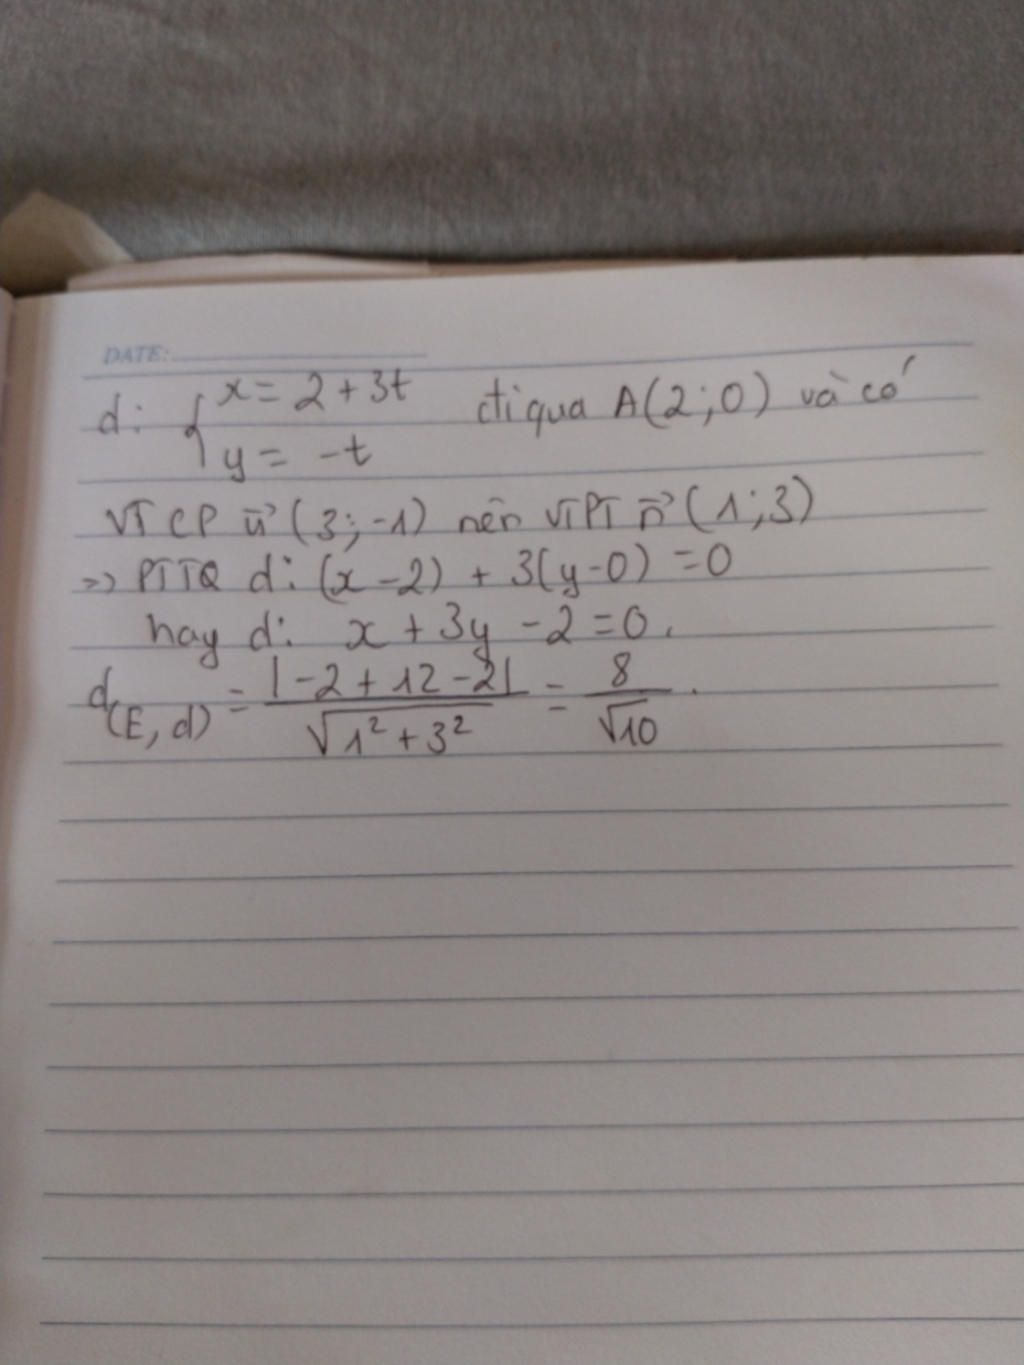 DATE:
d: { x = 2 + 3t đi qua A(2;0) và có
y = -t
VTCP u⃗ (3;-1) nên VTPT n⃗ (1;3)
=> PTTQ d: (x-2) + 3(y-0) = 0
hay d: x + 3y - 2 = 0.
d(E, d) = |-2 + 12 - 2| / √1² + 3² = 8 / √10.